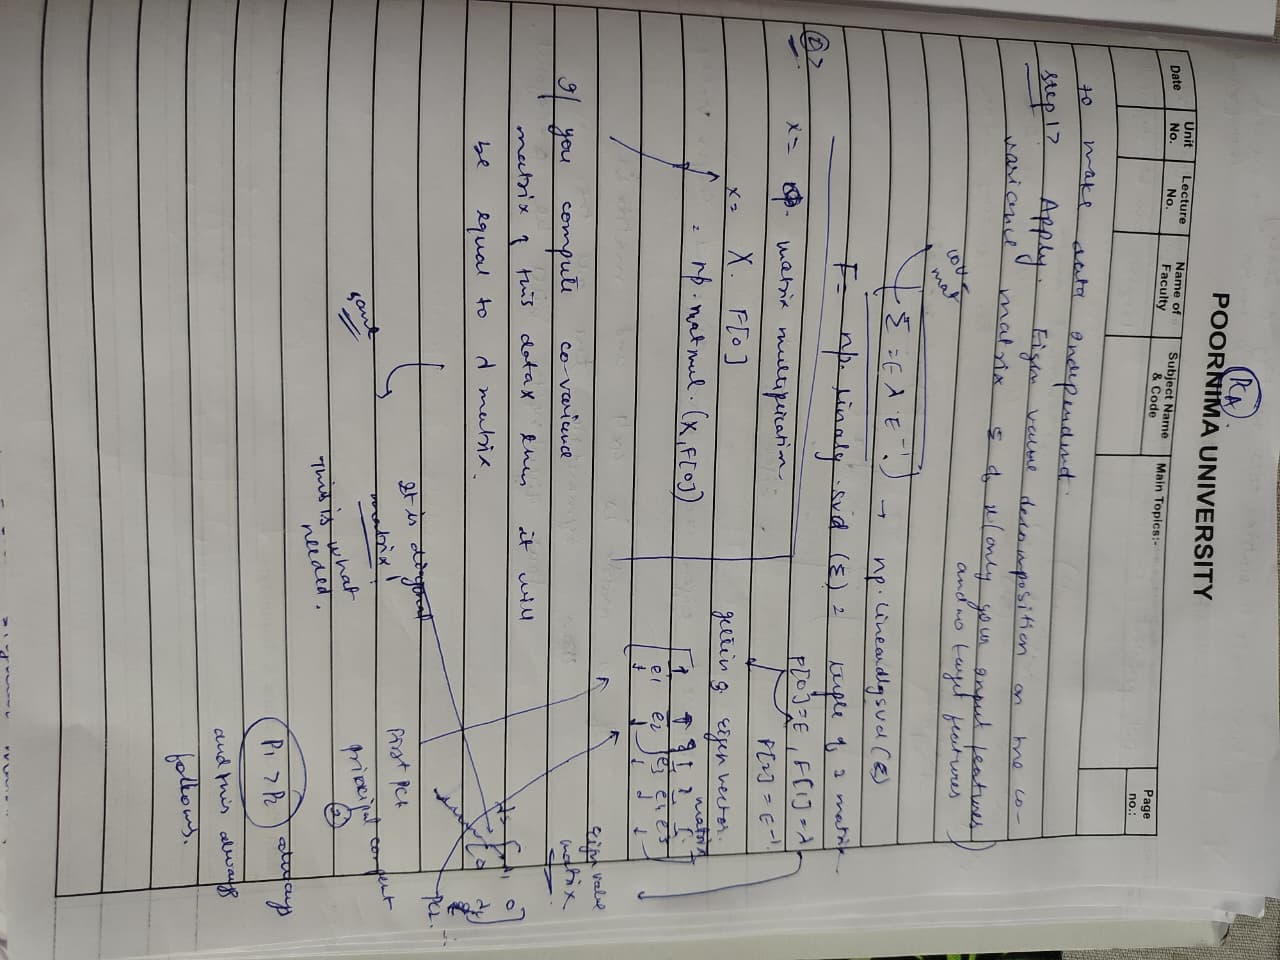 PCA
POORNIMA UNIVERSITY
Date
Unit No.
Lecture No.
Name of Faculty
Subject Name & Code
Main Topics:-
Page no.:
to make data independent.
step 1> Apply. Eigen value decomposition on the co-
variance matrix Σ of x (only your input features
and no target features)
mat
Σ = E λ . E⁻¹. → np. (Σ)
F = np. svd (Σ) = tuple of 2 matrix
F[0] = E, F[1] = λ
F[2] = E⁻¹.
②> x = matrix multiplication
x = X . F[0]
= np.matmul.(X, F[0])
getting eigen vector.
matrix
e1 e2 e3 e4 e5
eigen value
matrix.
If you compute co-variance
matrix of this data x then it will
be equal to λ matrix.
It is diagonal
matrix
This is what
needed.
First PC1
principal
②
P1 > P2 always
and this always
follows.